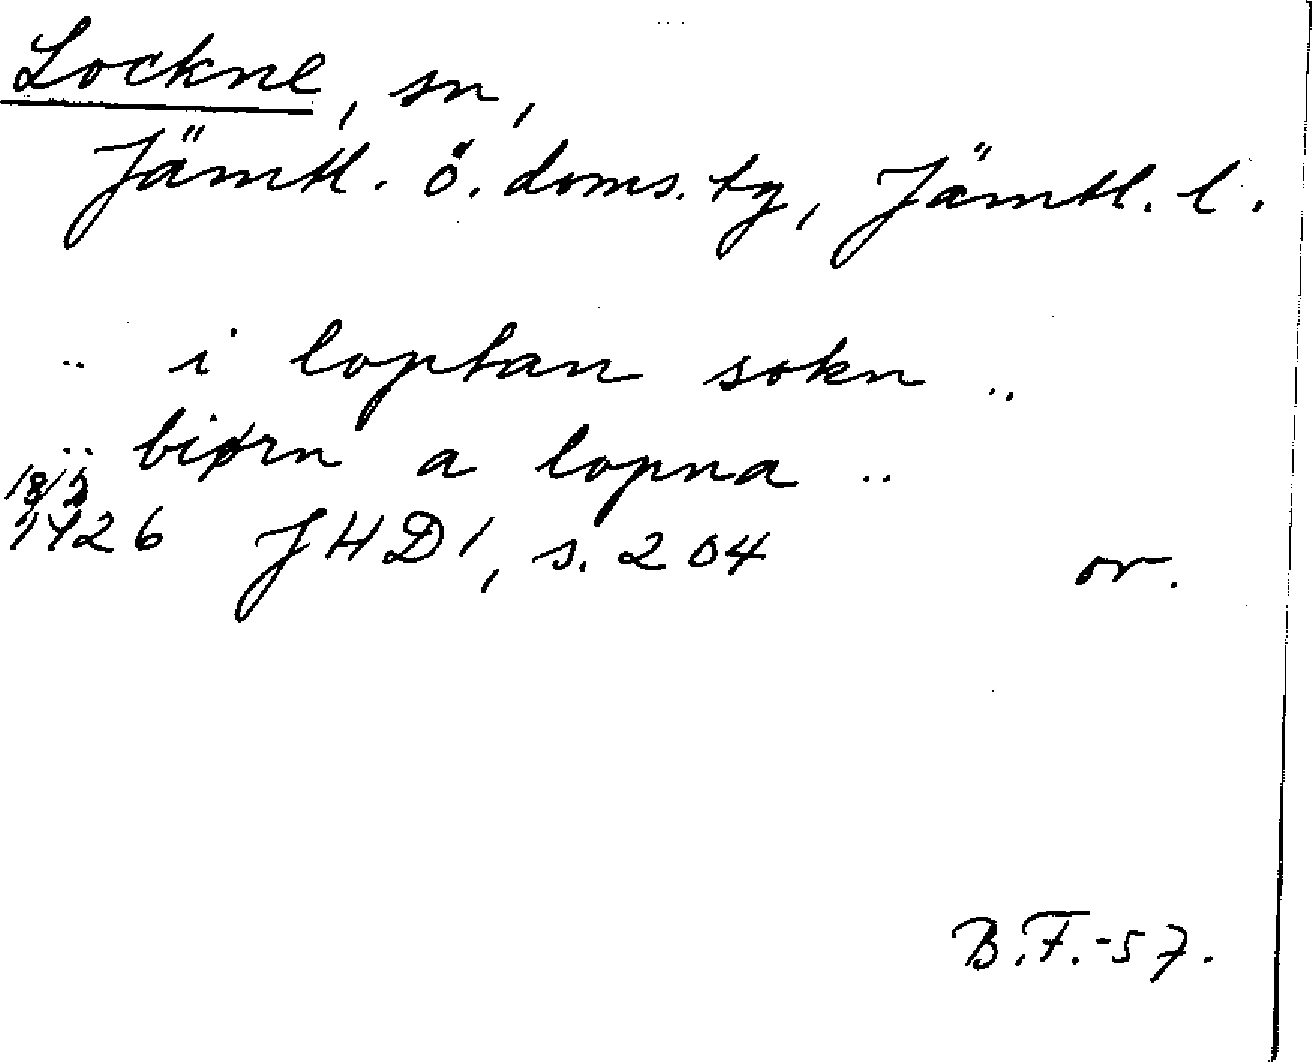 Lockne, sn,
Jämtl. ö. doms. tg, Jämtl. l.
.. i loptan sokn ..
.. biørn a lopna ..
18/2
1426 JHD 1, s. 204 or.
B.F.-57.